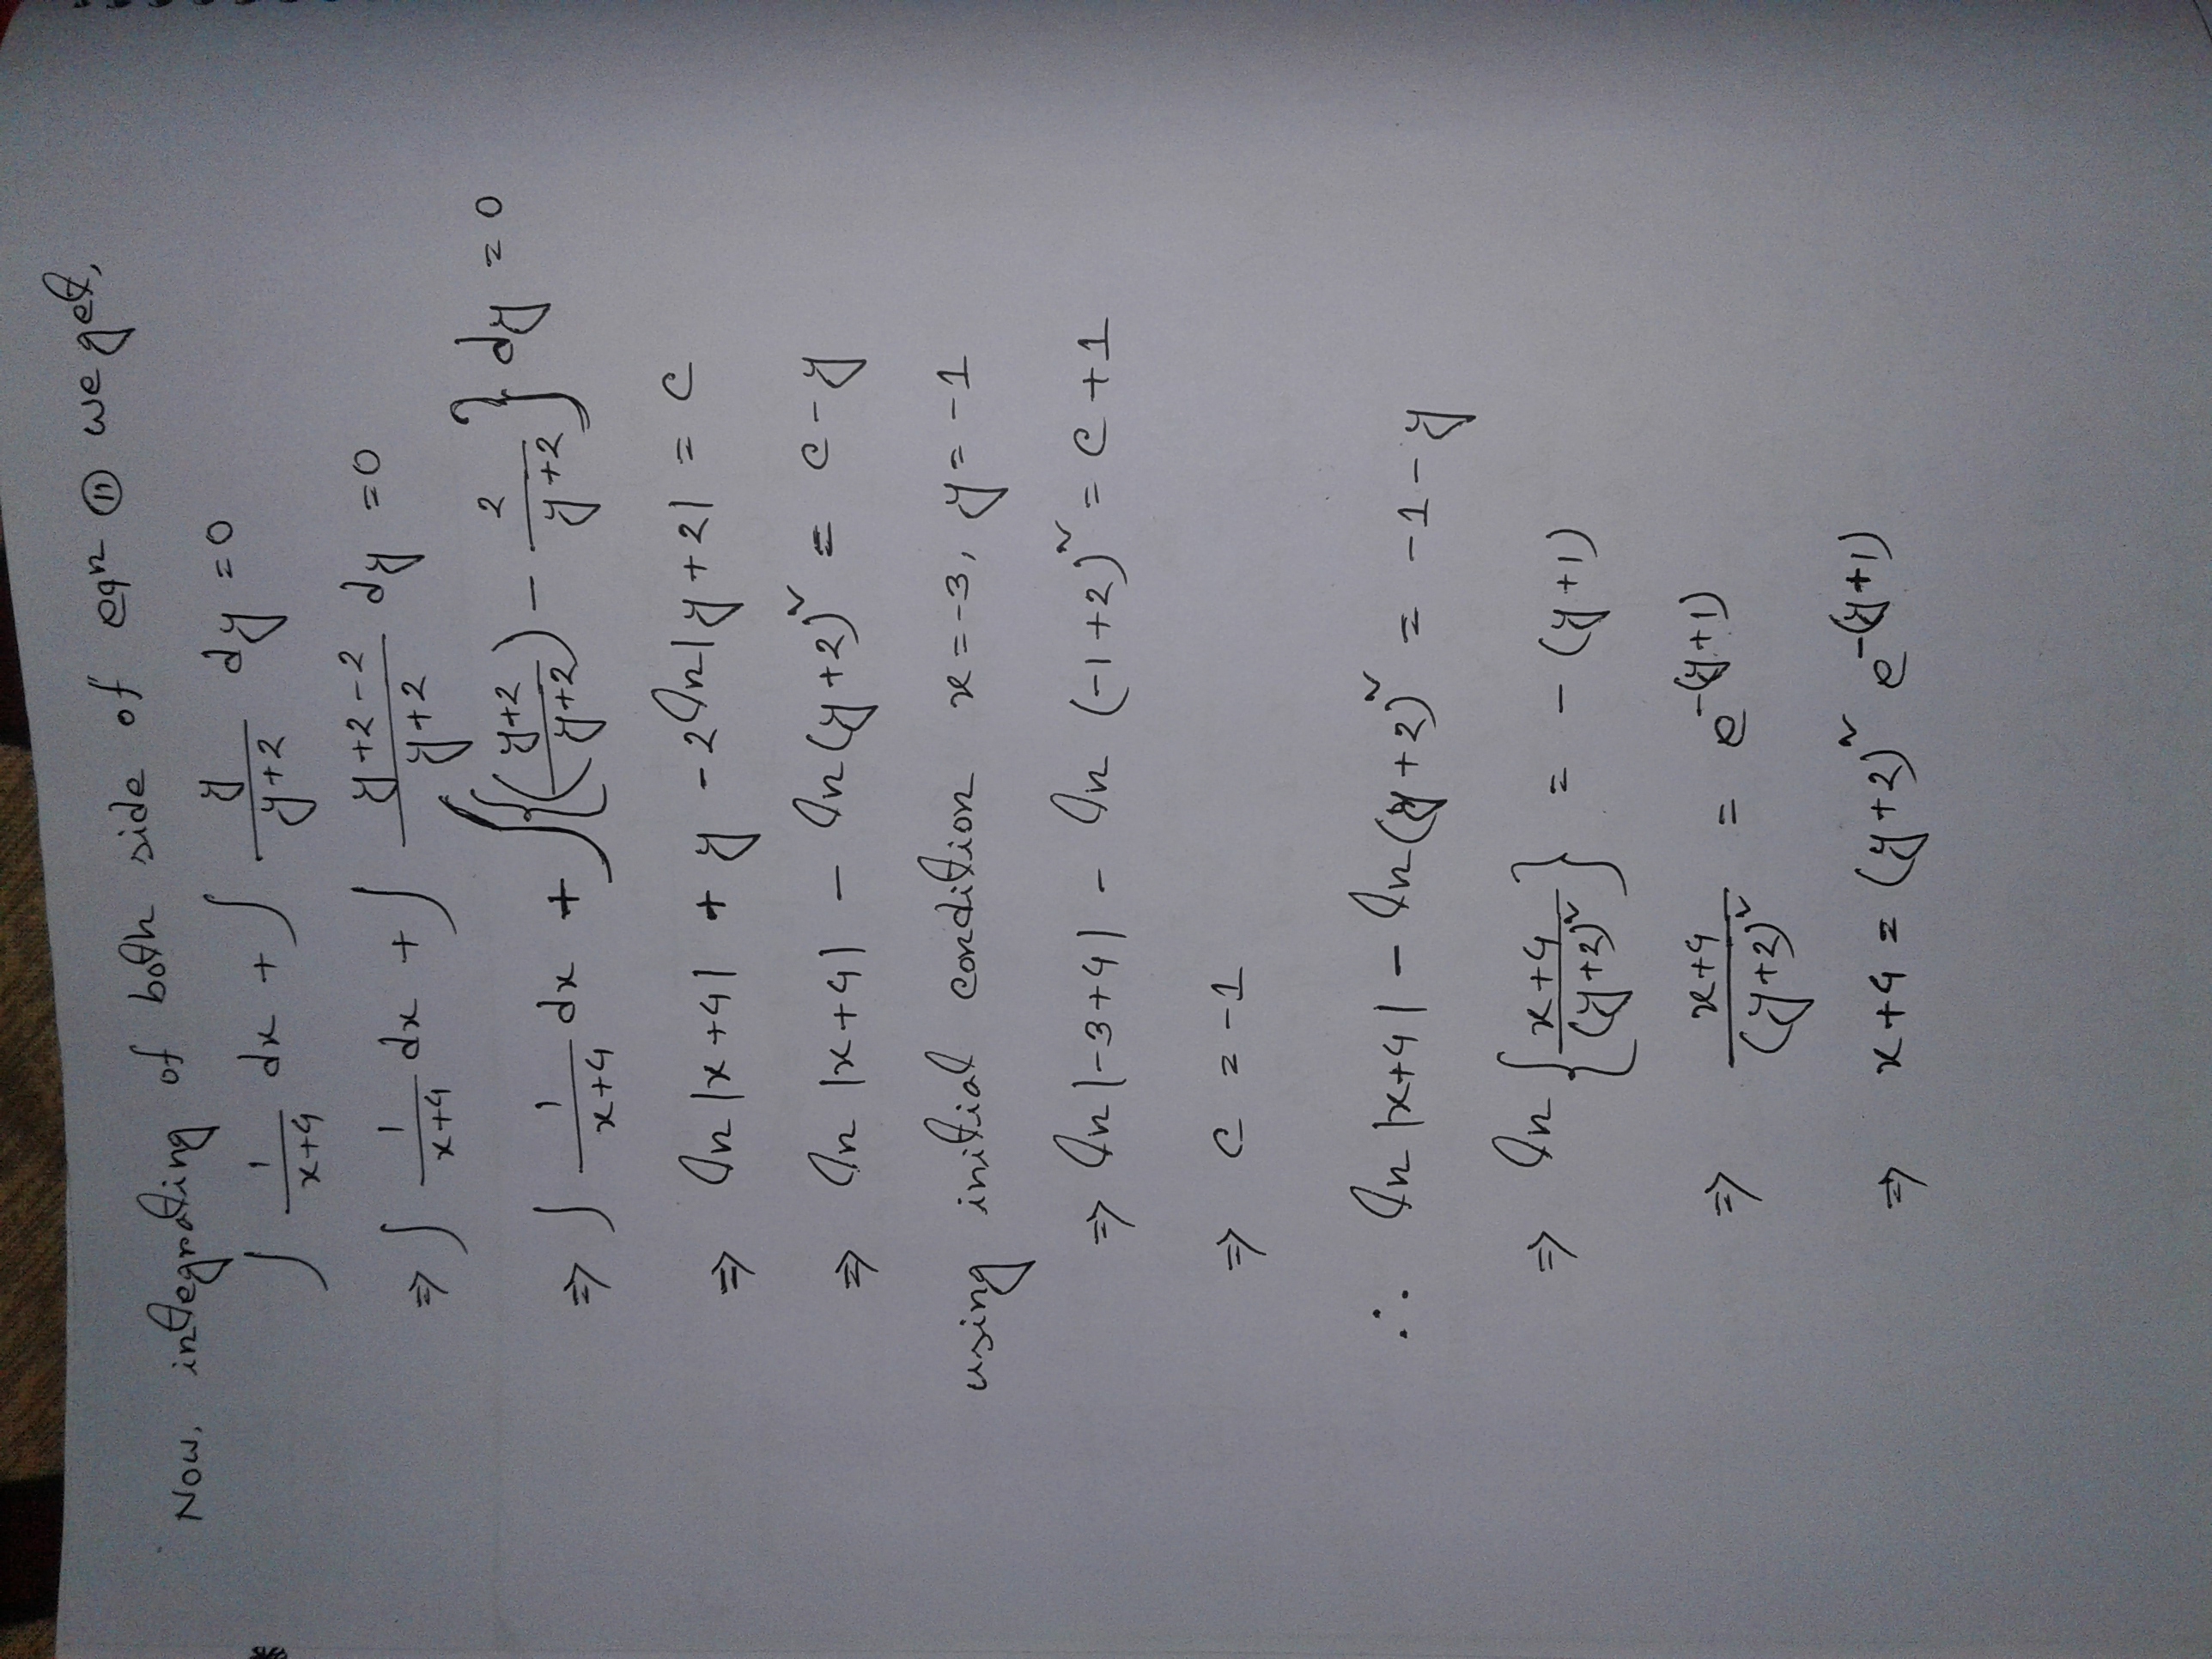 Now, integrating of both side of eqn (11) we get,
∫ 1/(x+4) dx + ∫ y/(y+2) dy = 0
⇒ ∫ 1/(x+4) dx + ∫ (y+2-2)/(y+2) dy = 0
⇒ ∫ 1/(x+4) dx + ∫{((y+2)/(y+2)) - 2/(y+2)} dy = 0
⇒ ln |x+4| + y - 2ln|y+2| = c
⇒ ln |x+4| - ln(y+2)² = c-y
using initial condition x=-3, y=-1
⇒ ln|-3+4| - ln (-1+2)² = c+1
⇒ c = -1
∴ ln |x+4| - ln(y+2)² = -1-y
⇒ ln {(x+4)/(y+2)²} = -(y+1)
⇒ (x+4)/(y+2)² = e^-(y+1)
⇒ x+4 = (y+2)² e^-(y+1)